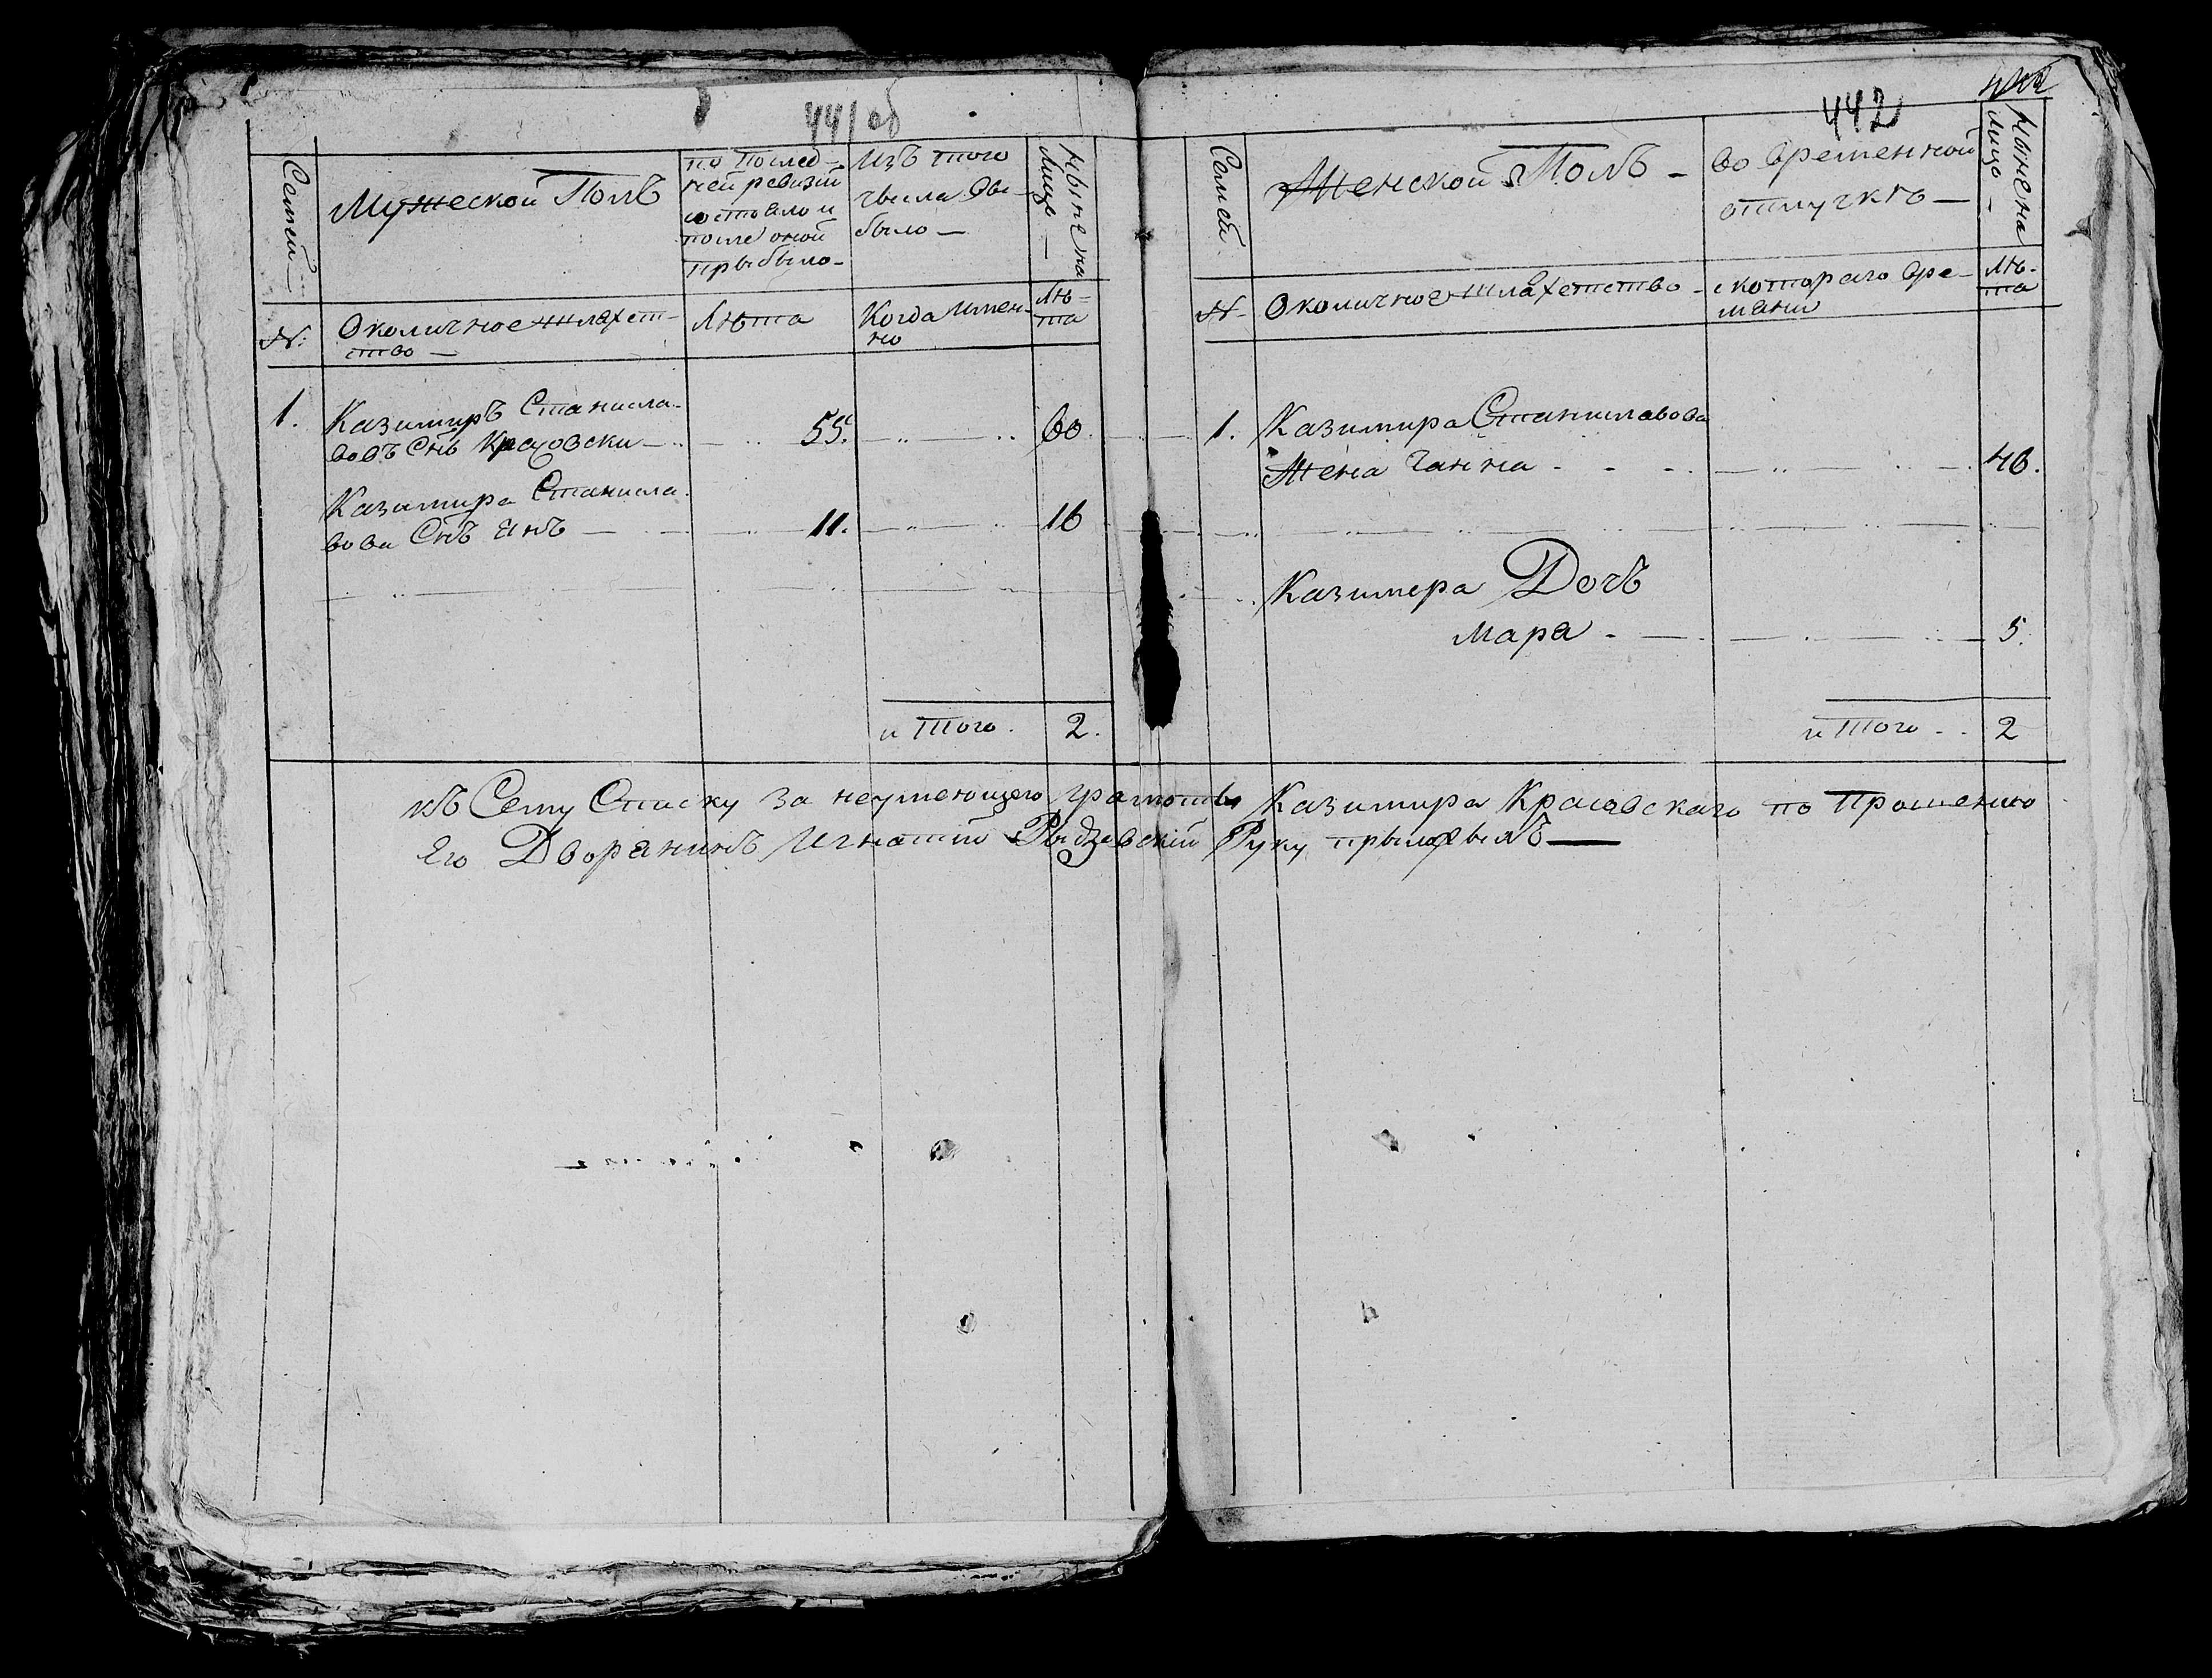 441 об
442
Семей
Мужеской Полъ
по послед-
ней ревизіи
состояло и
после оной
прыбыло
Изъ того
чысла
было
Ныне на
Лицо
№:
Околичное шляхет-
ство
Лѣта
Когда имен-
но
Лѣ-
та
1.
Казимиръ Станисла-
вовъ Снъ Красовски
55.
60
Казимира Станисла-
вова Снъ Янъ
11.
16
и Того
2.
Семей
Женской Полъ
во временной
отлучкѣ
Ныне на
Лицо
№
Околичное шляхетство
с котораго вре-
мяни
Лѣ-
та
1.
Казимира Станиславова
Жена Ганна
46.
Казимера Дочъ
Мара
5.
и Того
2
къ Сему Списку за неумеющего грамоты Казимира Красовскаго по Прошению
Его Дворянинъ Игнатий Рыдзевский Руку прыложылъ